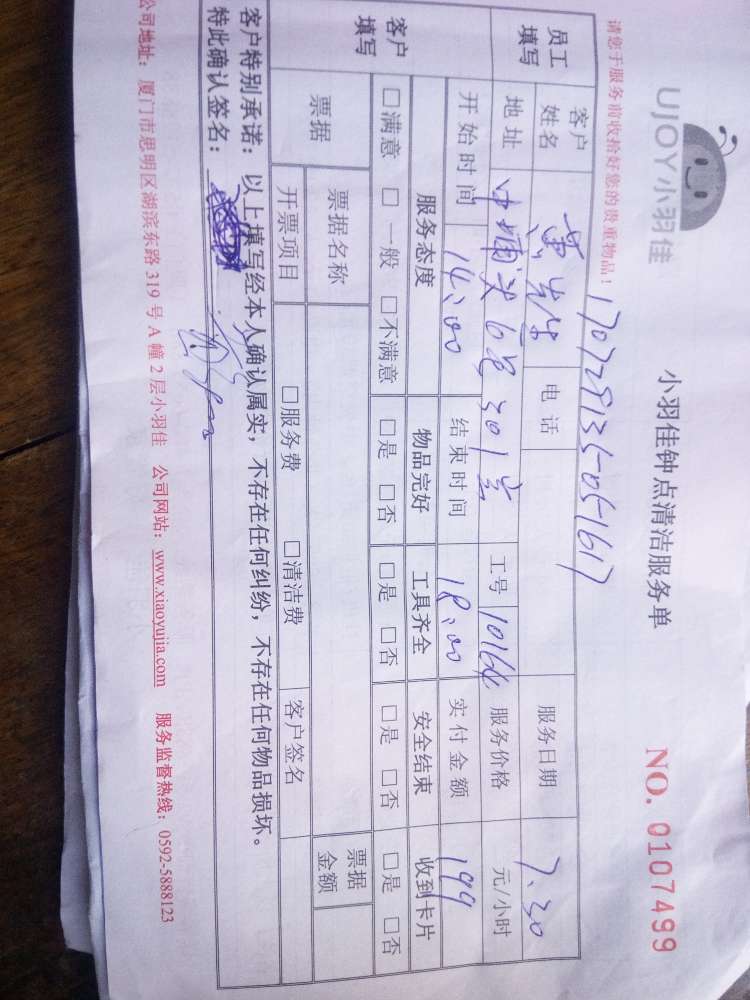 UJOY小羽佳
小羽佳钟点清洁服务单
NO. 0107499
请您于服务前收拾好您的贵重物品！
员工填写
客户姓名
电话
服务日期 7.30
地址 6号301室
工号 10164
服务价格 元/小时
客户填写
开始时间 14:00
结束时间 18:00
实付金额 199
服务态度 物品完好 工具齐全 安全结束 收到卡片
□满意 □一般 □不满意 □是 □否 □是 □否 □是 □否 □是 □否
票据 票据名称 票据金额
开票项目 □服务费 □清洁费 客户签名
客户特别承诺：以上填写经本人确认属实，不存在任何纠纷，不存在任何物品损坏。
特此确认签名：
公司地址：厦门市思明区湖滨东路319号A幢2层小羽佳 公司网站：www.xiaoyujia.com 服务监督热线：0592-5888123